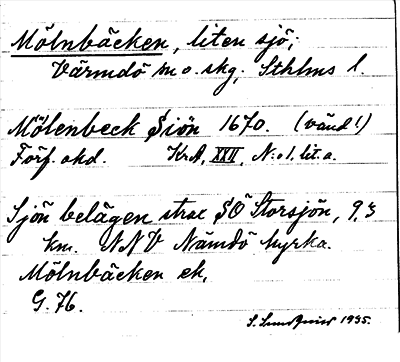 Mölnbäcken, liten sjö;
Värmdö sn o. skg, Sthlms l.
Mölenbeck Siön 1670. (vänd!)
Förf. okd. KrA, XXII, N:o 1. lit. a.
Sjön belägen strax SÖ Storsjön, 9,3
km. NNV Nämdö kyrka.
Mölnbäcken ek,
G. 76.
S. 1935.